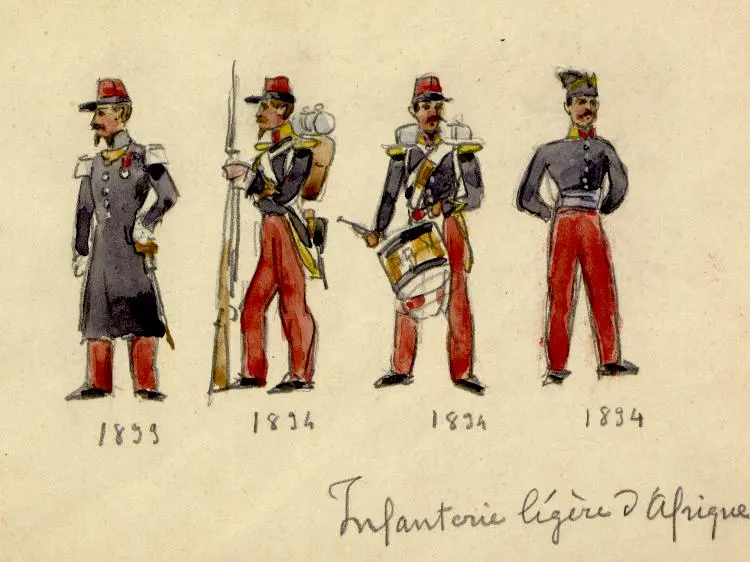 1899 1894 1894 1894
Infanterie légère d'Afrique